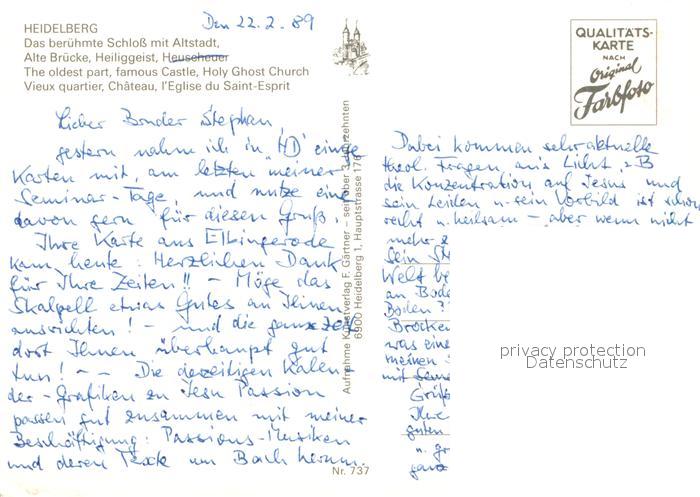 Den 22.2.89
HEIDELBERG
Das berühmte Schloß mit Altstadt,
Alte Brücke, Heiliggeist, Heuscheuer
The oldest part, famous Castle, Holy Ghost Church
Vieux quartier, Château, l'Eglise du Saint-Esprit
QUALITÄTS-
KARTE
NACH
Original
Farbfoto
Lieber Bruder Stephan,
gestern nahm ich in "HD" einige
Karten mit, am letzten meiner
Seminar-Tage, und nutze eine
davon gern für diesen Gruß.
Ihre Karte aus Elbingerode
kam heute: Herzlichen Dank
für Ihre Zeilen!! - Möge das
Skalpell etwas Gutes an Ihnen
ausrichten! - und die ganze Zeit
dort Ihnen überhaupt gut
tun! - - Die derzeitigen Kalen-
der-Grafiken zu Jesu Passion
passen gut zusammen mit meiner
Beschäftigung: Passions-Musiken
und deren Texte um Bach herum.
Aufnahme Kunstverlag F. Gärtner – seit über 3 Jahrzehnten
6900 Heidelberg 1, Hauptstrasse 176
Nr. 737
Dabei kommen sehr aktuelle
theol. Fragen ans Licht, z.B
die Konzentration auf Jesus und
sein Leiden u. sein Vorbild ist schön
recht u. heilsam - aber wenn nicht
mehr
Sein
Welt
an Bode
Boden?
Brocken
was eine
meinen
mit
Grüße
Ihre
guten
u. gr
ganz
privacy protection
Datenschutz